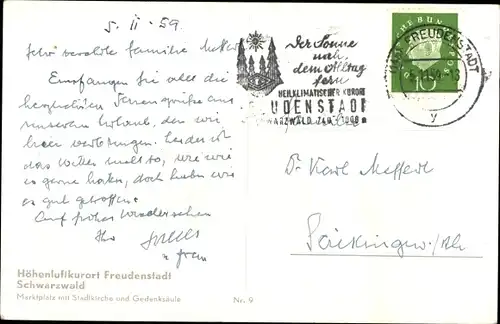 5. II - 59
Sehr verehrte Familie
Empfangen Sie alle die
herzlichsten Feriengrüsse aus
unserem Urlaub, den wir
hier verbringen. Leider ist
das Wetter nicht so, wie wir
es gerne haben, doch haben wir
es gut getroffen.
Auf frohes Wiedersehen
Ihr
u Frau
Höhenluftkurort Freudenstadt
Schwarzwald
Marktplatz mit Stadtkirche und Gedenksäule Nr. 9
Der Sonne
nah,
dem Alltag
fern
HEILKLIMATISCHER KURORT
UDENSTADT
WARZWALD 740
FREUDENSTADT
y
10
Dr. Karl
Säckingen/Rh